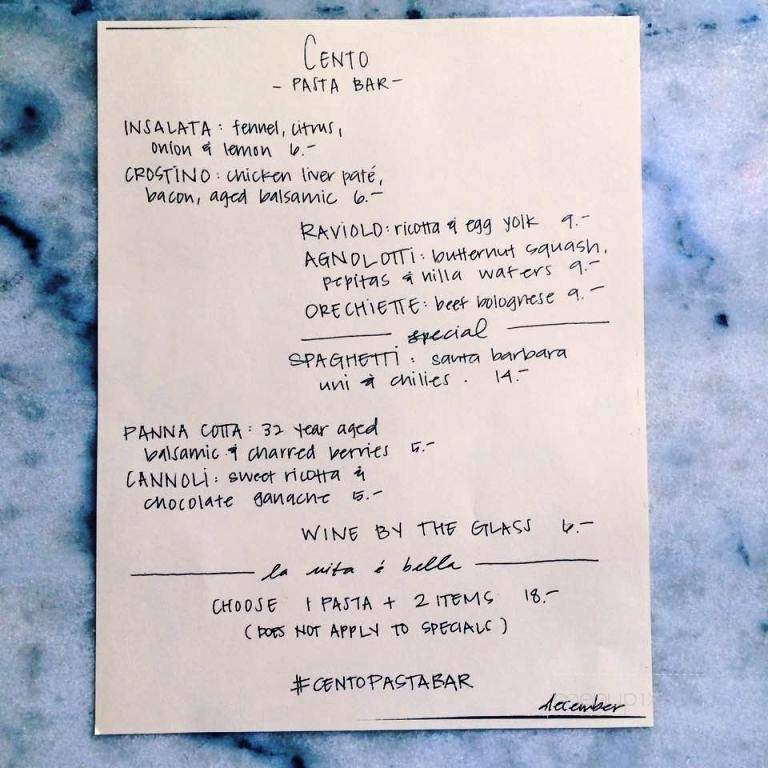 CENTO
- PASTA BAR -
INSALATA : fennel, citrus,
onion & lemon 6.-
CROSTINO : chicken liver paté,
bacon, aged balsamic 6.-
RAVIOLO : ricotta & egg yolk 9.-
AGNOLOTTI : butternut squash,
pepitas & nilla wafers 9.-
ORECHIETTE : beef bolognese 9.-
special
SPAGHETTI : santa barbara
uni & chilies . 14.-
PANNA COTTA : 32 year aged
balsamic & charred berries 5.-
CANNOLI : sweet ricotta &
chocolate ganache 5.-
WINE BY THE GLASS 6.-
la vita é bella
CHOOSE 1 PASTA + 2 ITEMS 18.-
(DOES NOT APPLY TO SPECIALS)
#CENTOPASTABAR
december